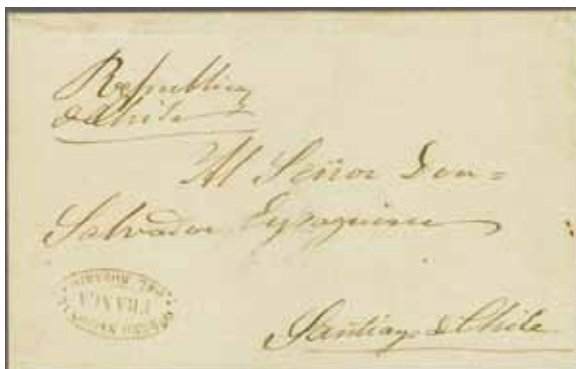 Republica
de Chile
Al Señor Don=
Salvador Eyzaguirre
Santiago de Chile
FRANCA